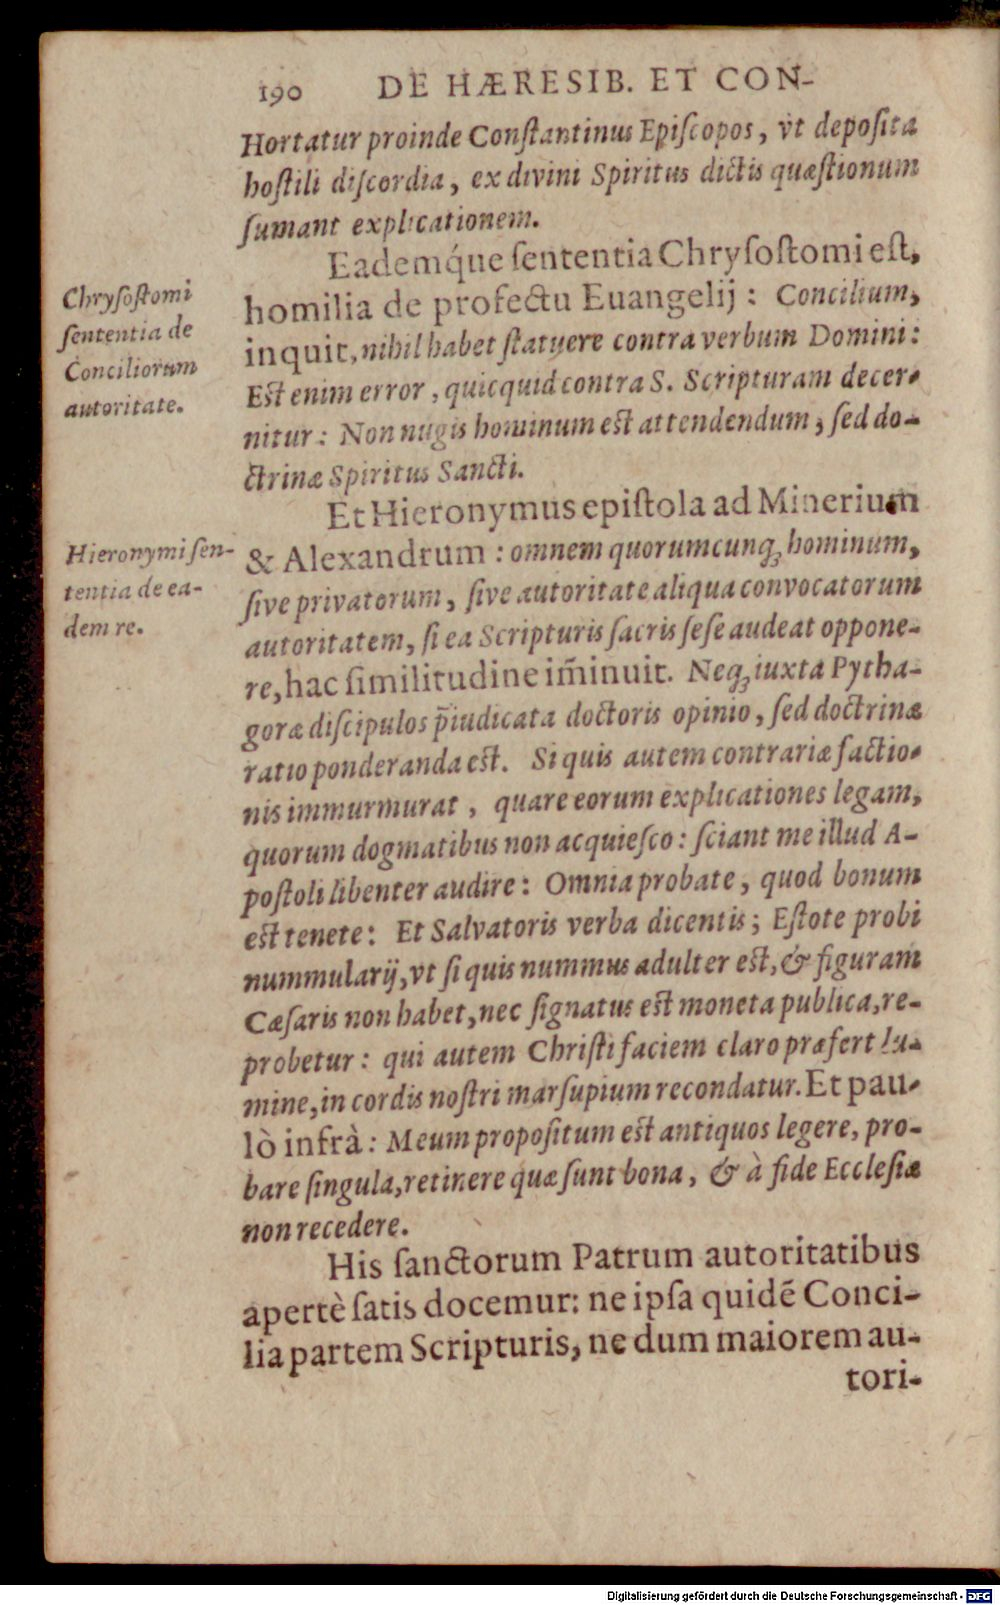 190 DE HÆRESIB. ET CON-
Hortatur proinde Conſtantinus Epiſcopos, vt depoſita
hoſtili diſcordia, ex divini Spiritus dictis quæſtionum
ſumant explicationem.
Eademq́ue ſententia Chryſoſtomi eſt,
homilia de profectu Euangelij: Concilium,
inquit, nihil habet ſtatuere contra verbum Domini:
Eſt enim error, quicquid contra S. Scripturam decer-
nitur: Non nugis hominum eſt attendendum, ſed do-
ctrinæ Spiritus Sancti.
Chryſoſtomi
ſententia de
Conciliorum
autoritate.
Et Hieronymus epiſtola ad Minerium
& Alexandrum: omnem quorumcunqꝫ hominum,
ſive privatorum, ſive autoritate aliqua convocatorum
autoritatem, ſi ea Scripturis ſacris ſeſe audeat oppone-
re, hac ſimilitudine im̃inuit. Neqꝫ iuxta Pytha-
goræ diſcipulos p̃iudicata doctoris opinio, ſed doctrinæ
ratio ponderanda eſt. Si quis autem contrariæ factio-
nis immurmurat, quare eorum explicationes legam,
quorum dogmatibus non acquieſco: ſciant me illud A-
poſtoli libenter audire: Omnia probate, quod bonum
eſt tenete: Et Salvatoris verba dicentis; Eſtote probi
nummularij, vt ſi quis nummus adulter eſt, & figuram
Cæſaris non habet, nec ſignatus eſt moneta publica, re-
probetur: qui autem Chriſti faciem claro præfert lu-
mine, in cordis noſtri marſupium recondatur. Et pau-
lò infrà: Meum propoſitum eſt antiquos legere, pro-
bare ſingula, retinere quæ ſunt bona, & à fide Eccleſiæ
non recedere.
Hieronymi ſen-
tentia de ea-
dem re.
His ſanctorum Patrum autoritatibus
apertè ſatis docemur: ne ipſa quidẽ Conci-
lia partem Scripturis, ne dum maiorem au-
tori-
Digitalisierung gefördert durch die Deutsche Forschungsgemeinschaft - DFG